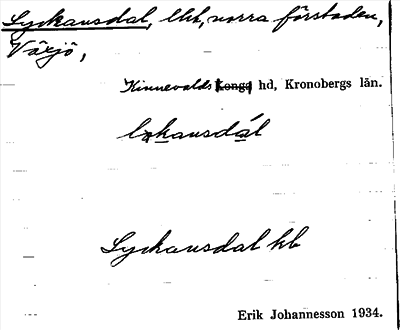 Lyckansdal, lht, norra förstaden,
Växjö,
Kinnevalds Konga hd, Kronobergs län.
Lyckansdal hb
Erik Johannesson 1934.